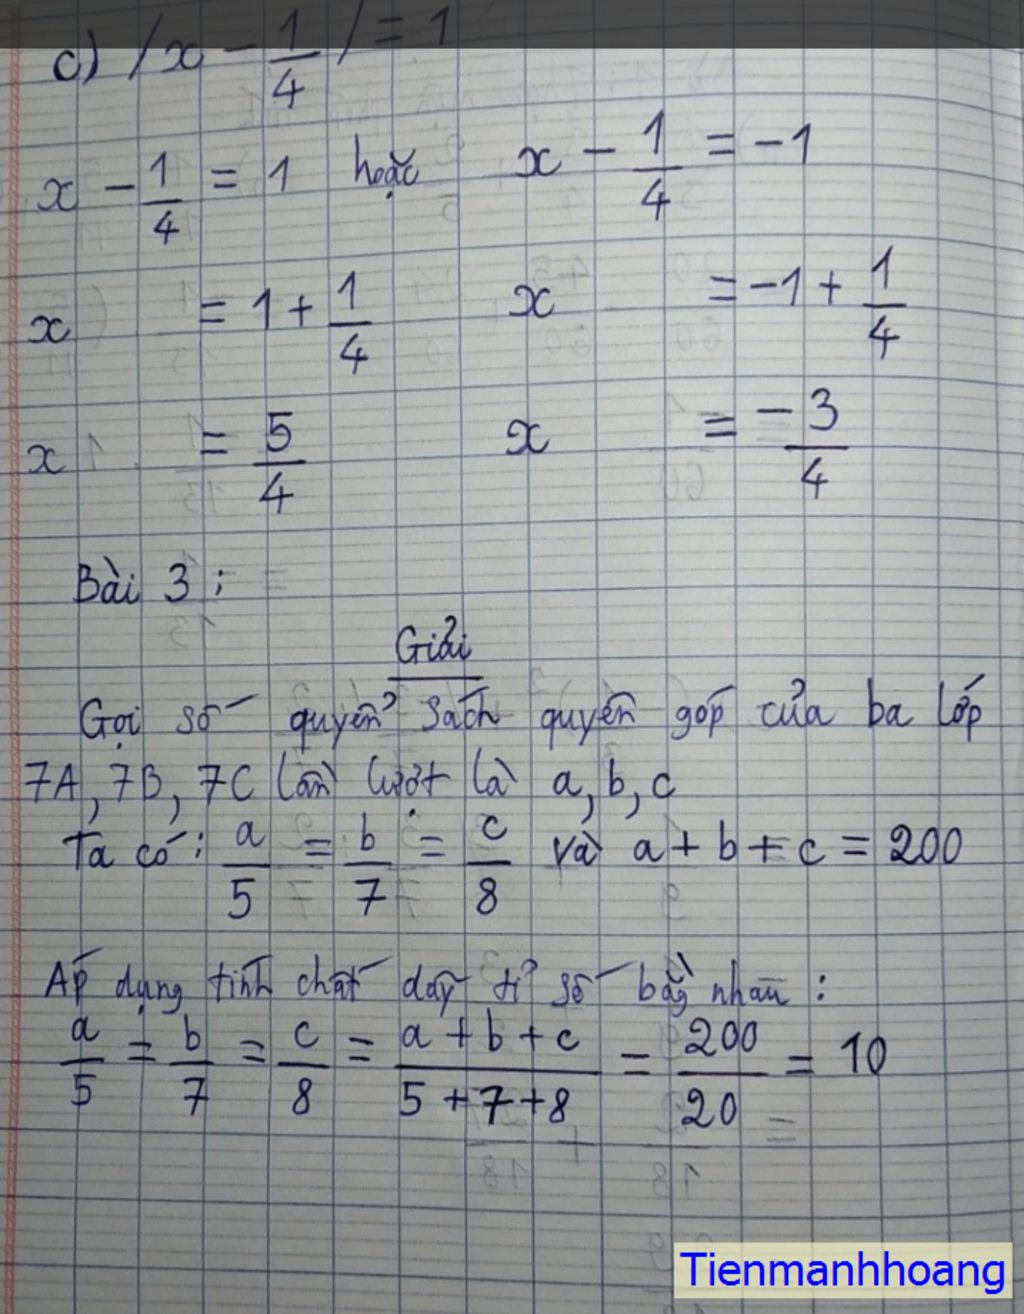 c) /x - 1/4 / = 1
x - 1/4 = 1 hoặc x - 1/4 = -1
x = 1 + 1/4 x = -1 + 1/4
x = 5/4 x = -3/4
Bài 3 :
Giải
Gọi số quyển sách quyên góp của ba lớp
7A, 7B, 7C lần lượt là a, b, c
Ta có : a/5 = b/7 = c/8 và a + b + c = 200
Áp dụng tính chất dãy tỉ số bằng nhau :
a/5 = b/7 = c/8 = a + b + c / 5 + 7 + 8 = 200/20 = 10
Tienmanhhoang